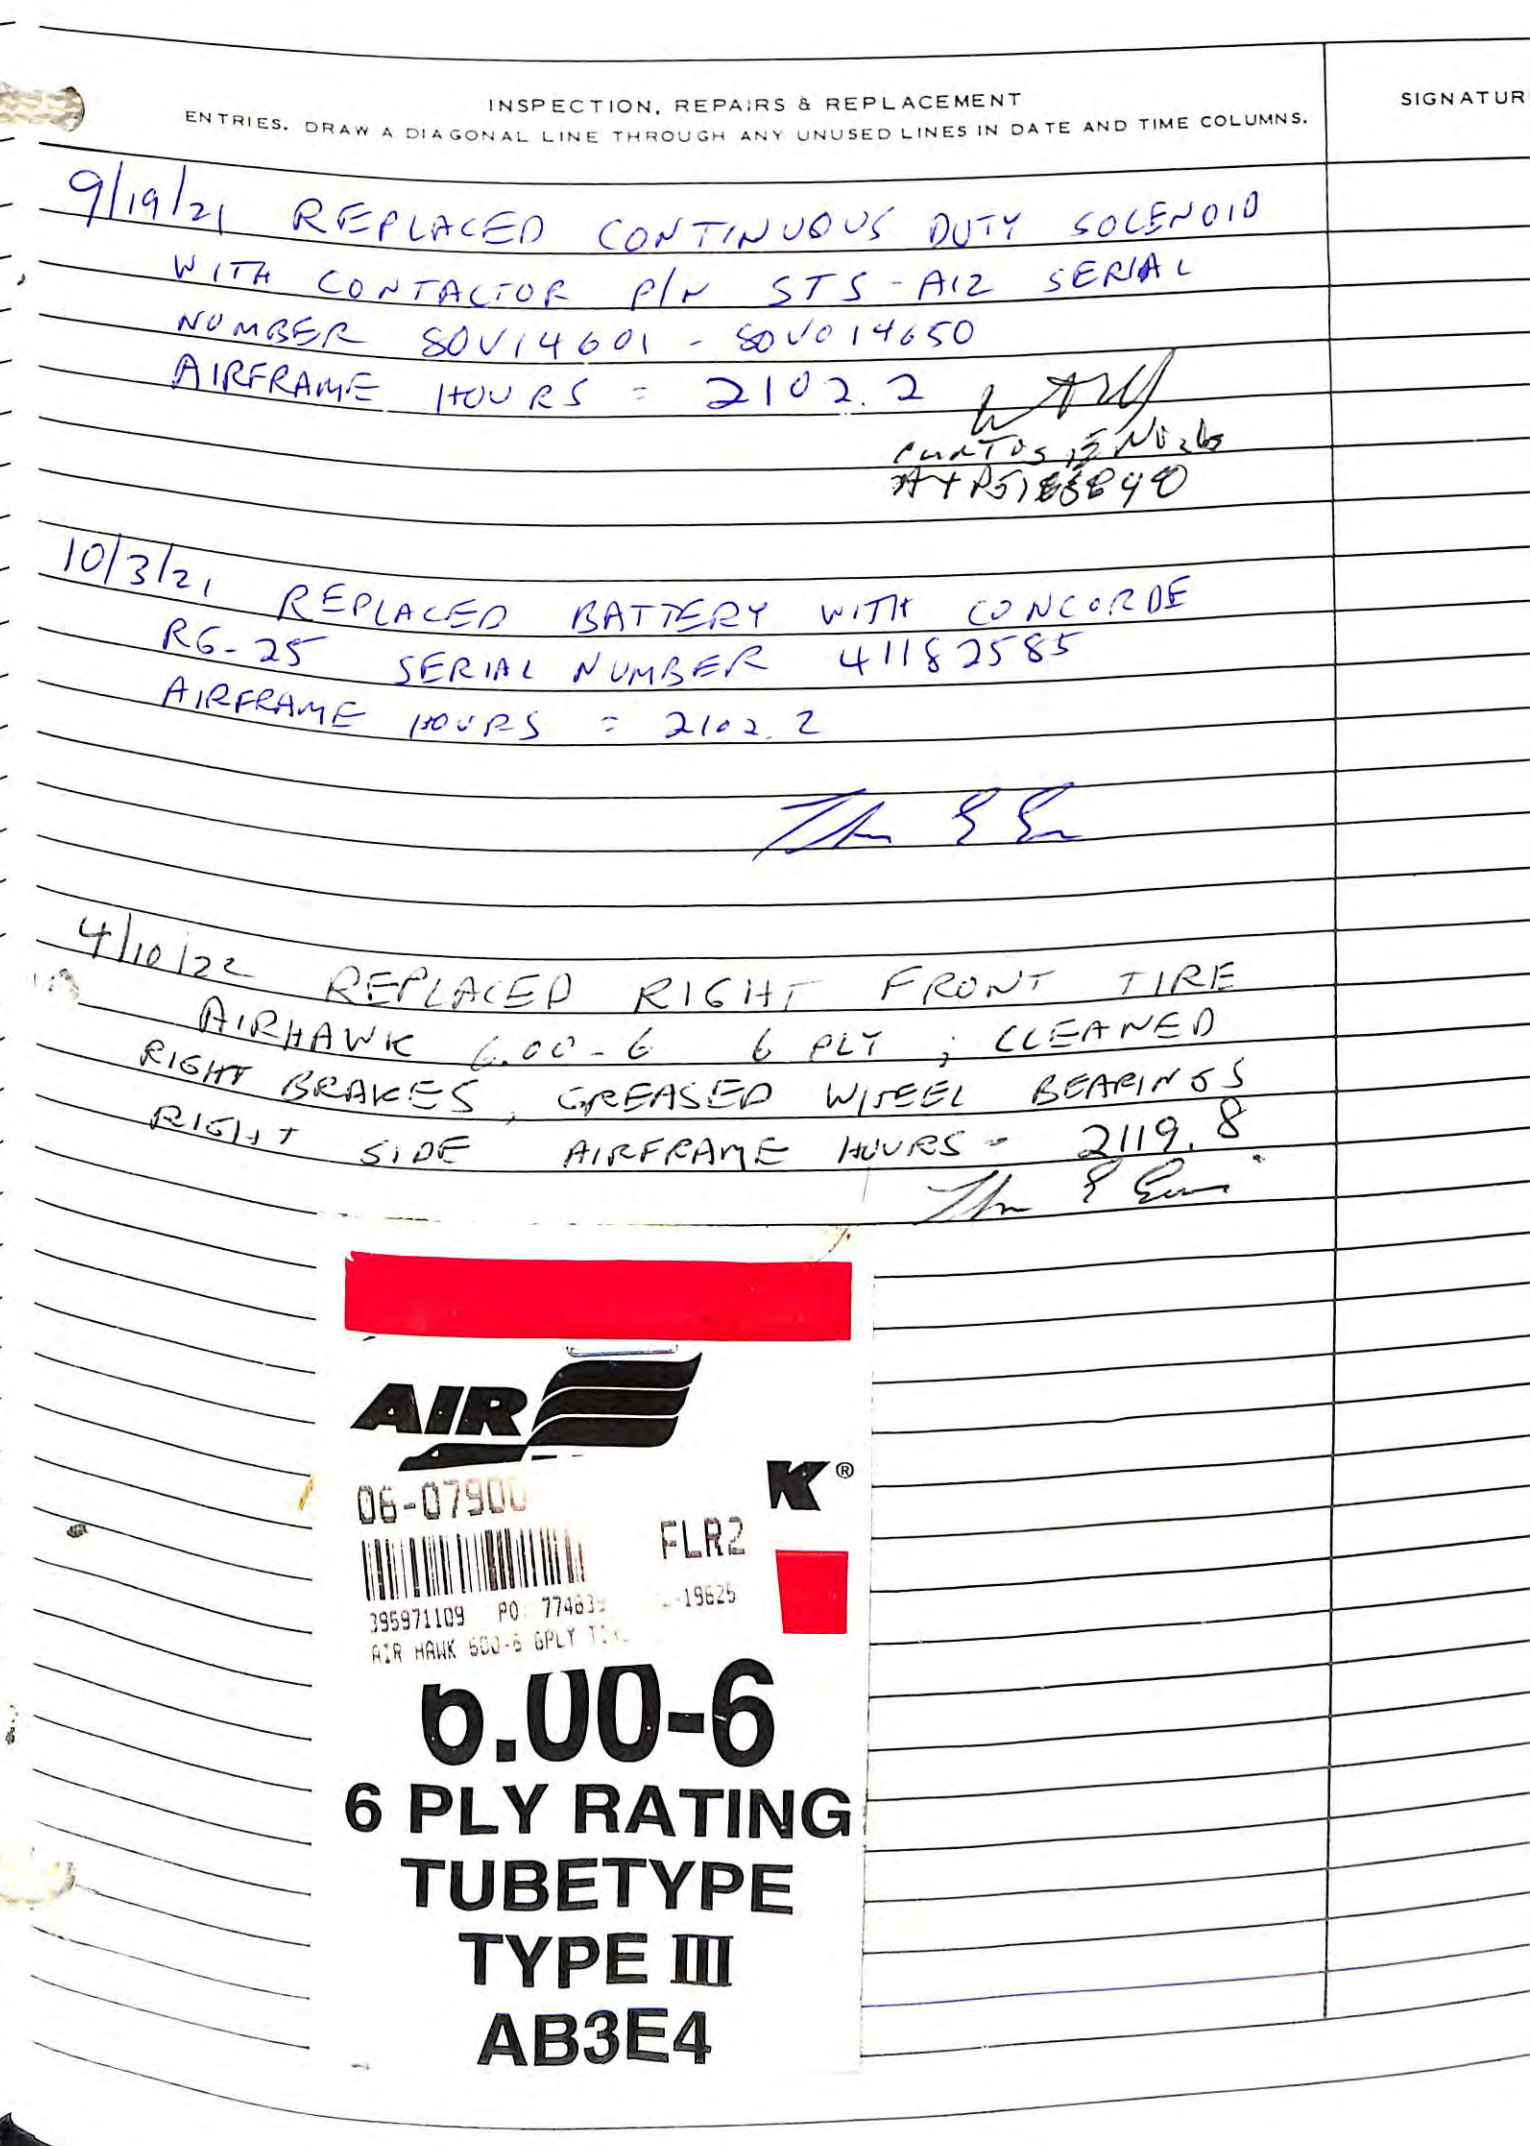 INSPECTION, REPAIRS & REPLACEMENT
SIGNATUR
ENTRIES. DRAW A DIAGONAL LINE THROUGH ANY UNUSED LINES IN DATE AND TIME COLUMNS.
9/19/21 REPLACED CONTINUOUS DUTY SOLENOID
WITH CONTACTOR P/N STS-A12 SERIAL
NUMBER 80V14601 - 80V014650
AIRFRAME HOURS = 2102.2
10/3/21 REPLACED BATTERY WITH CONCORDE
RG-25 SERIAL NUMBER 41182585
AIRFRAME HOURS = 2102.2
4/10/22 REPLACED RIGHT FRONT TIRE
AIRHAWK 6.00-6 6 PLY ; CLEANED
RIGHT BRAKES, GREASED WHEEL BEARINGS
RIGHT SIDE AIRFRAME HOURS - 2119.8
AIR
K®
06-07900
FLR2
395971109 PO: 77483 -19625
AIR HAWK 600-6 6PLY
6.00-6
6 PLY RATING
TUBETYPE
TYPE III
AB3E4